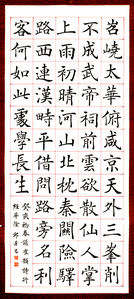 岧嶢太華俯咸京天外三峯削
不成武帝祠前雲欲散仙人掌
上雨初晴河山北枕秦關險驛
路西連漢畤平借問路旁名利
客何如此處學長生
初春錄崔顥詩行
經華陰